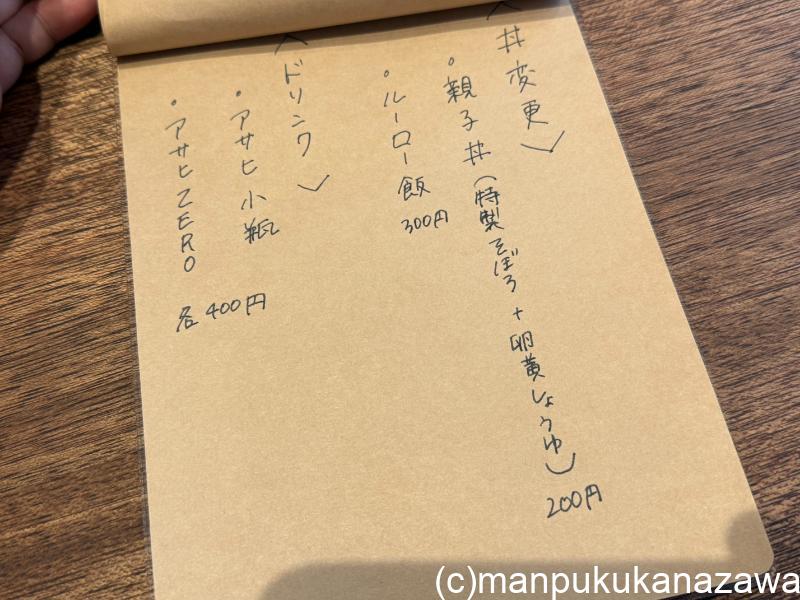 〈丼変更〉
・親子丼(特製そぼろ+卵黄しょうゆ) 200円
・ルーロー飯 300円
〈ドリンク〉
・アサヒ小瓶
・アサヒZERO
各400円
(c)manpukukanazawa